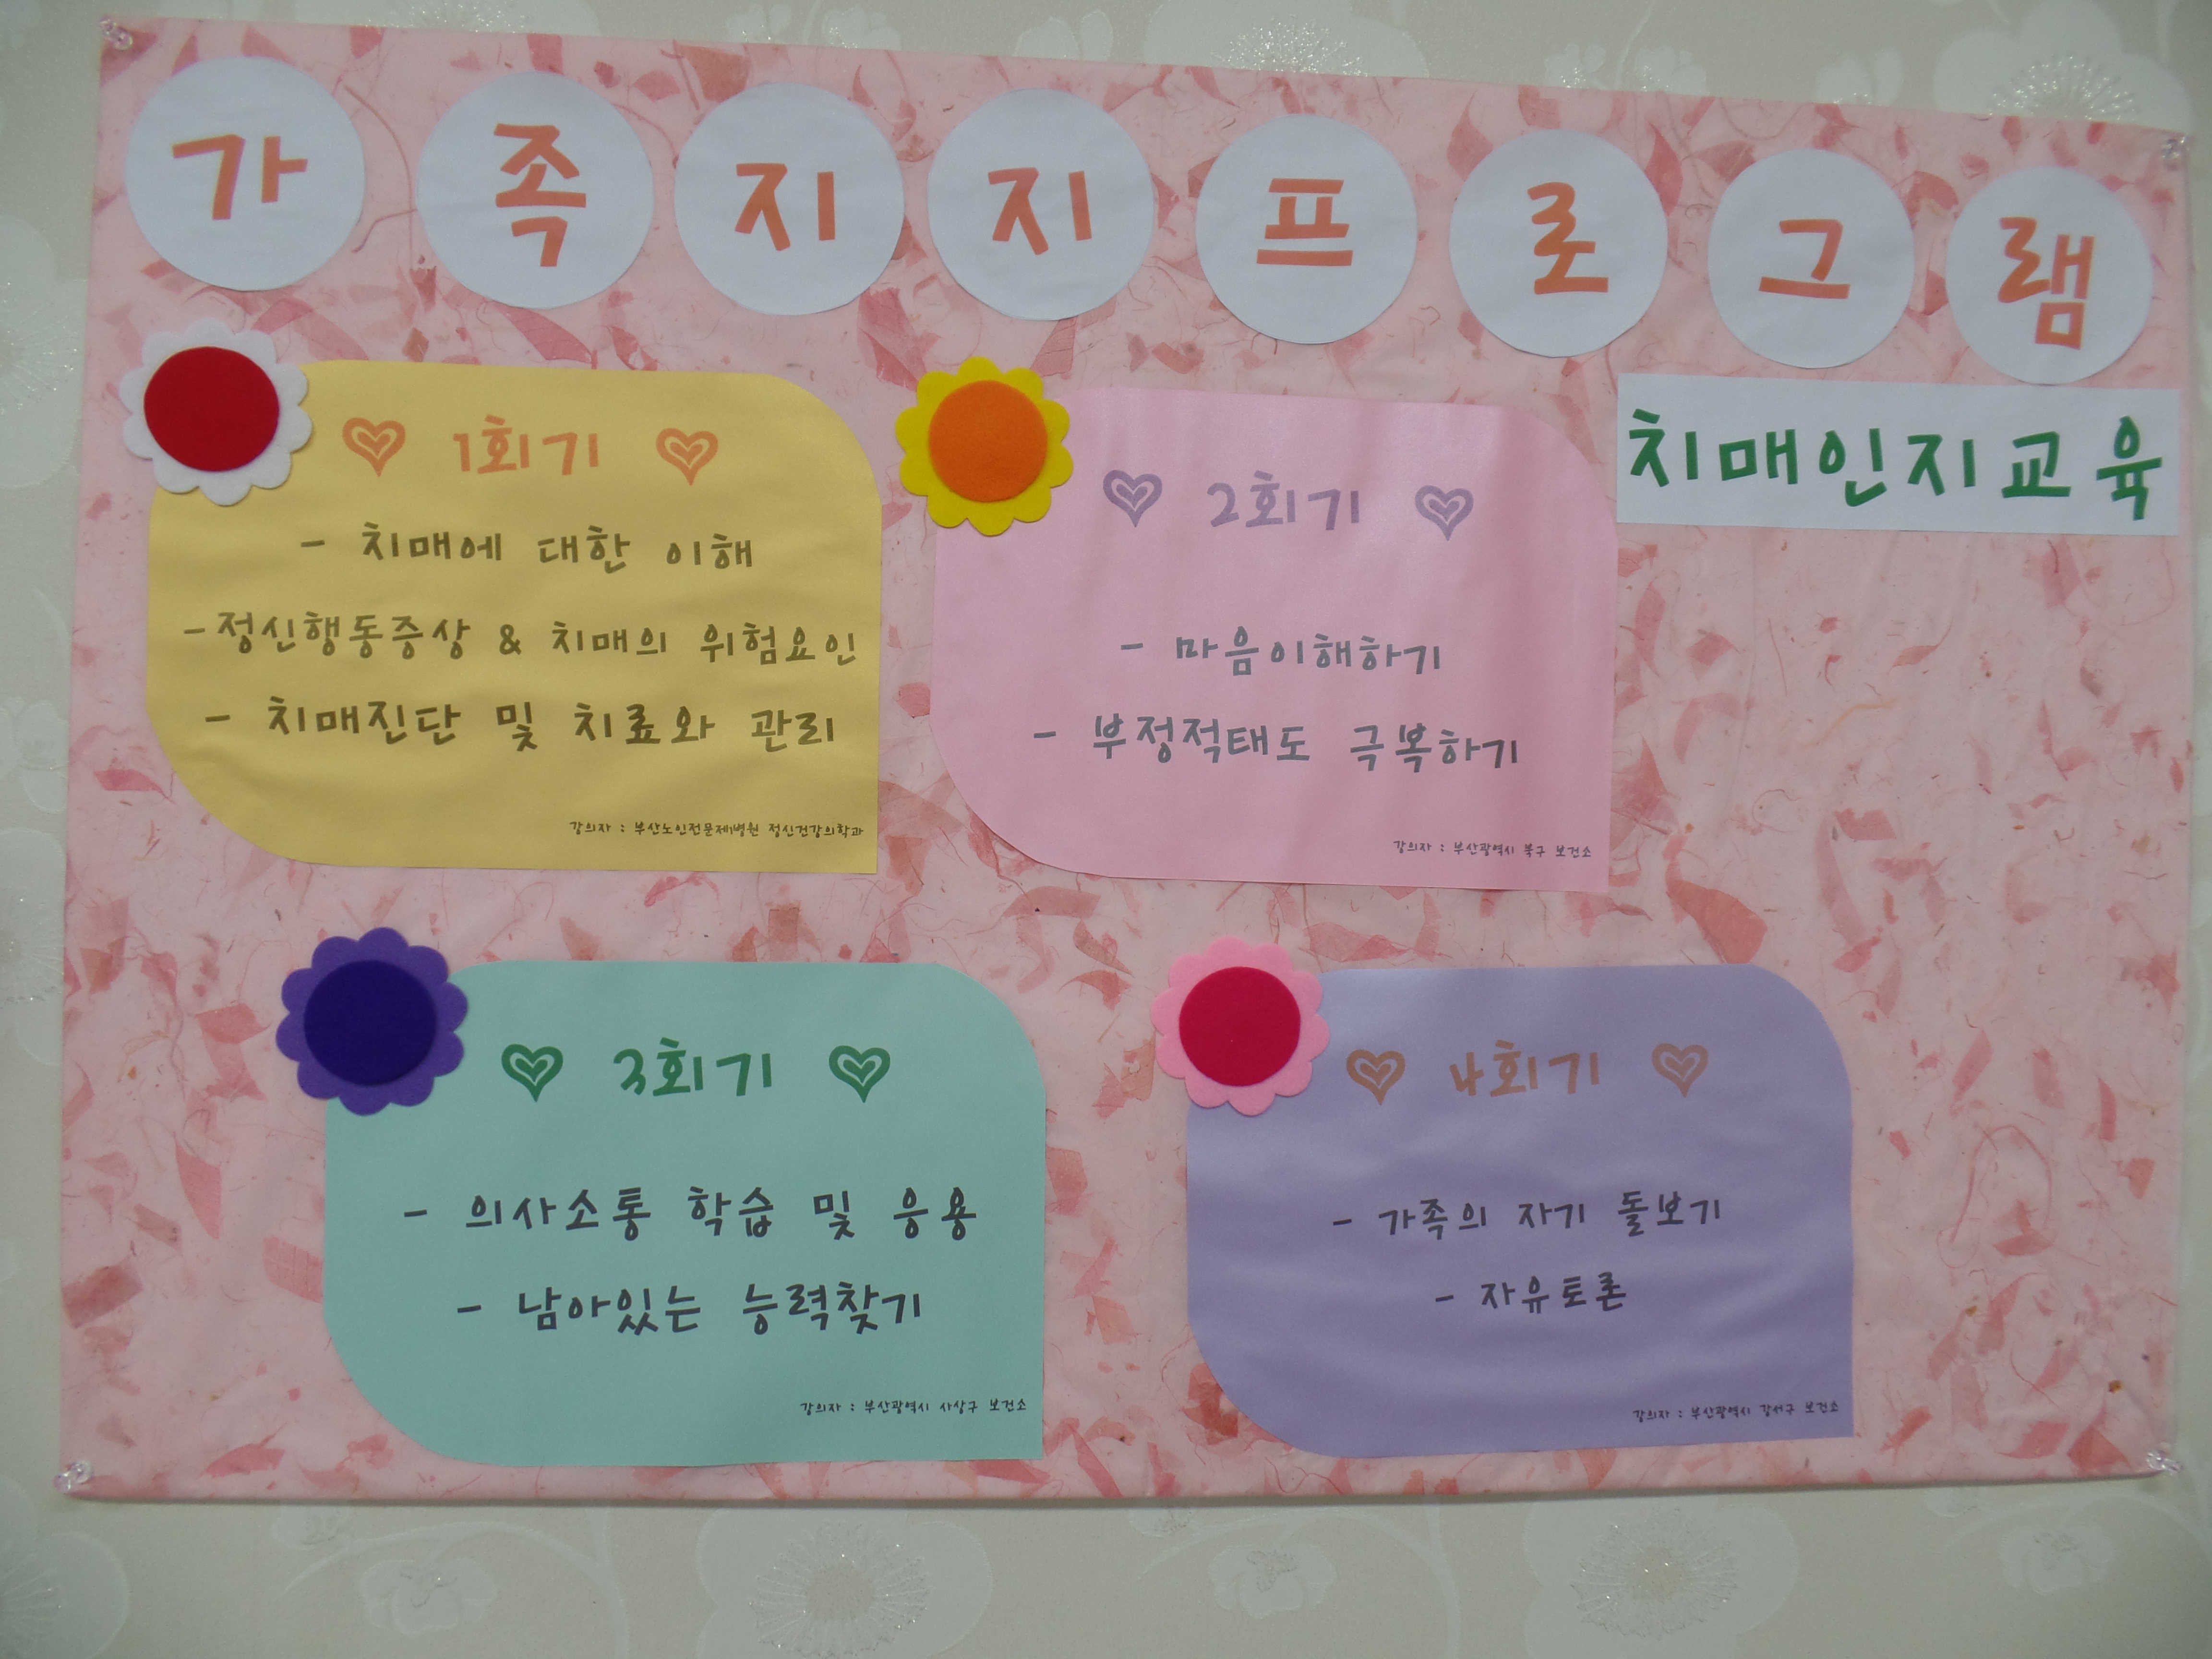 가족지지프로그램
치매인지교육
1회기
- 치매에 대한 이해
-정신행동증상 & 치매의 위험요인
- 치매진단 및 치료와 관리
강의자 : 부산노인전문제1병원 정신건강의학과
2회기
- 마음이해하기
- 부정적태도 극복하기
강의자 : 부산광역시 북구 보건소
3회기
- 의사소통 학습 및 응용
- 남아있는 능력찾기
강의자 : 부산광역시 사상구 보건소
4회기
- 가족의 자기 돌보기
- 자유토론
강의자 : 부산광역시 강서구 보건소